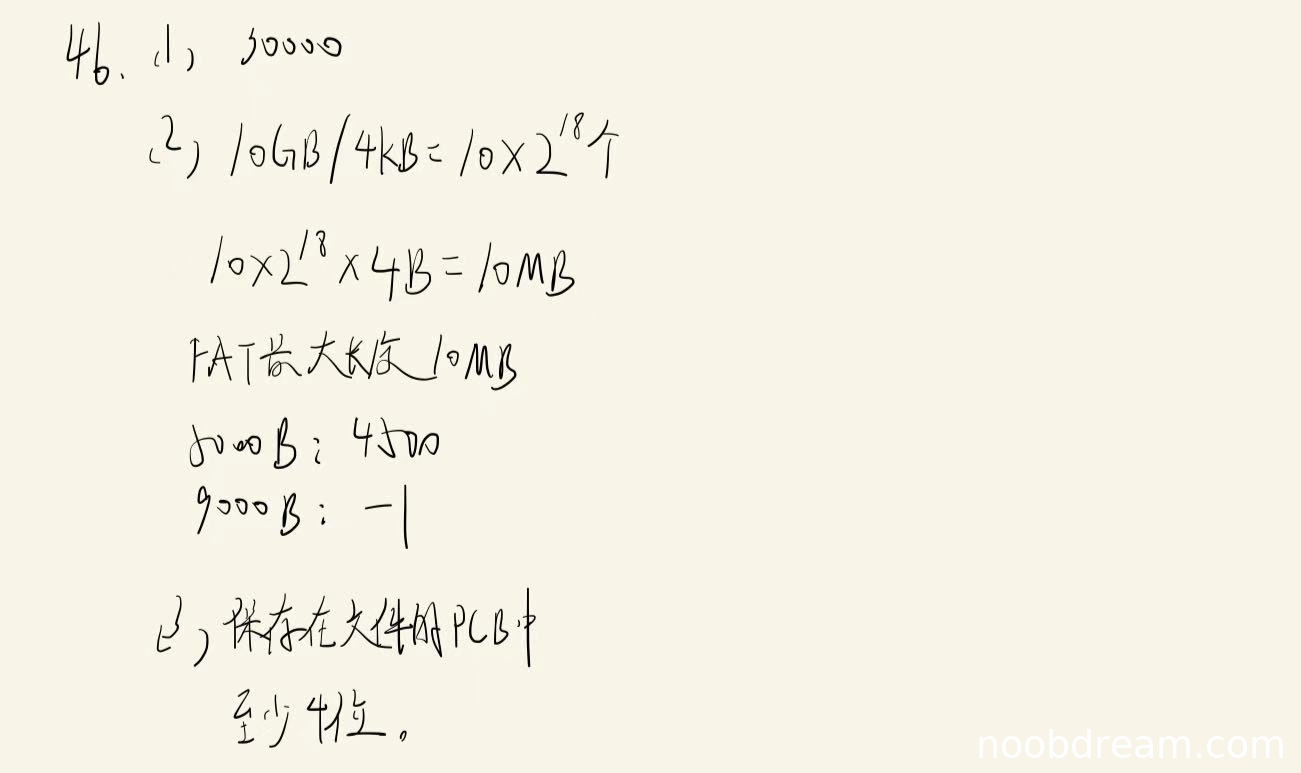 46. (1) 30000
(2) 10GB/4KB=10×2^18个
10×2^18×4B=10MB
FAT最大长度10MB
5000B: 4500
9000B: -1
(3) 保存在文件的PCB中
至少4位。
noobdream.com